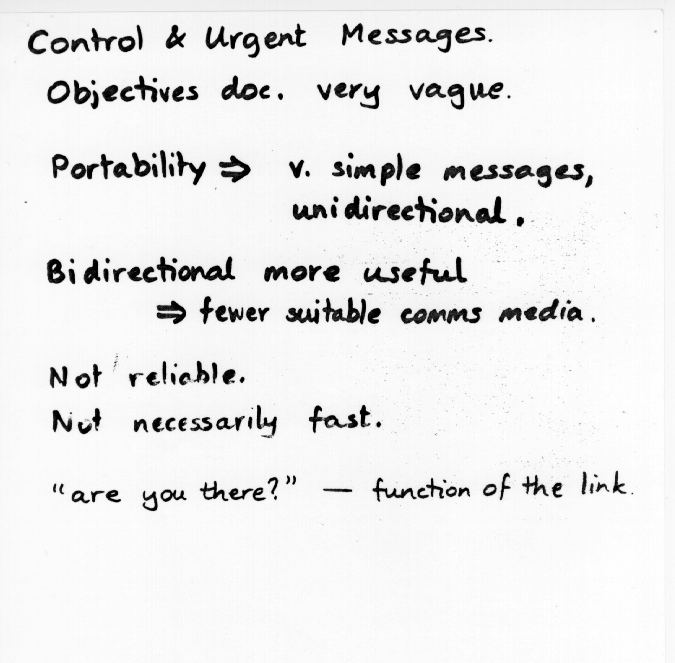 Control & Urgent Messages.
Objectives doc. very vague.
Portability ⇒ v. simple messages,
unidirectional.
Bidirectional more useful
⇒ fewer suitable comms media.
Not reliable.
Not necessarily fast.
"are you there?" — function of the link.